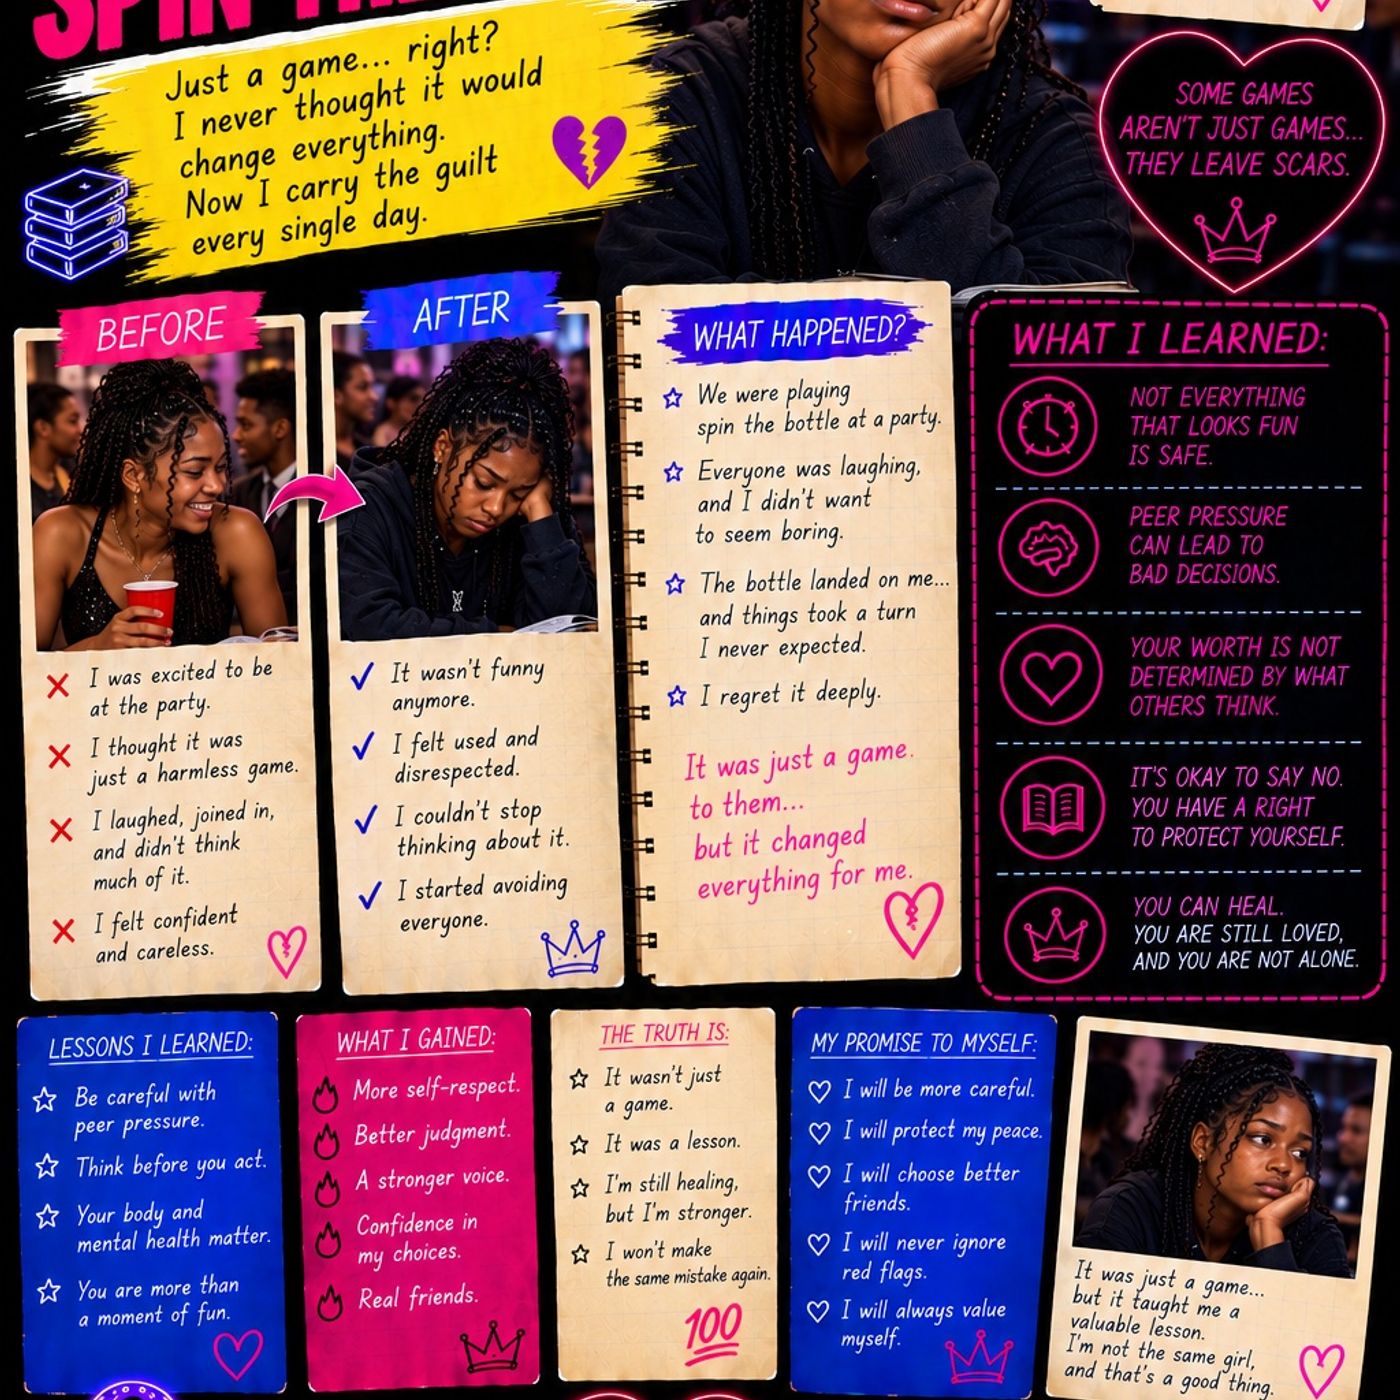 Just a game... right?
I never thought it would
change everything.
Now I carry the guilt
every single day.
SOME GAMES
AREN'T JUST GAMES...
THEY LEAVE SCARS.
BEFORE
I was excited to be
at the party.
I thought it was
just a harmless game.
I laughed, joined in,
and didn't think
much of it.
I felt confident
and careless.
AFTER
It wasn't funny
anymore.
I felt used and
disrespected.
I couldn't stop
thinking about it.
I started avoiding
everyone.
WHAT HAPPENED?
We were playing
spin the bottle at a party.
Everyone was laughing,
and I didn't want
to seem boring.
The bottle landed on me...
and things took a turn
I never expected.
I regret it deeply.
It was just a game.
to them...
but it changed
everything for me.
WHAT I LEARNED:
NOT EVERYTHING
THAT LOOKS FUN
IS SAFE.
PEER PRESSURE
CAN LEAD TO
BAD DECISIONS.
YOUR WORTH IS NOT
DETERMINED BY WHAT
OTHERS THINK.
IT'S OKAY TO SAY NO.
YOU HAVE A RIGHT
TO PROTECT YOURSELF.
YOU CAN HEAL.
YOU ARE STILL LOVED,
AND YOU ARE NOT ALONE.
LESSONS I LEARNED:
Be careful with
peer pressure.
Think before you act.
Your body and
mental health matter.
You are more than
a moment of fun.
WHAT I GAINED:
More self-respect.
Better judgment.
A stronger voice.
Confidence in
my choices.
Real friends.
THE TRUTH IS:
It wasn't just
a game.
It was a lesson.
I'm still healing,
but I'm stronger.
I won't make
the same mistake again.
100
MY PROMISE TO MYSELF:
I will be more careful.
I will protect my peace.
I will choose better
friends.
I will never ignore
red flags.
I will always value
myself.
It was just a game...
but it taught me a
valuable lesson.
I'm not the same girl,
and that's a good thing.